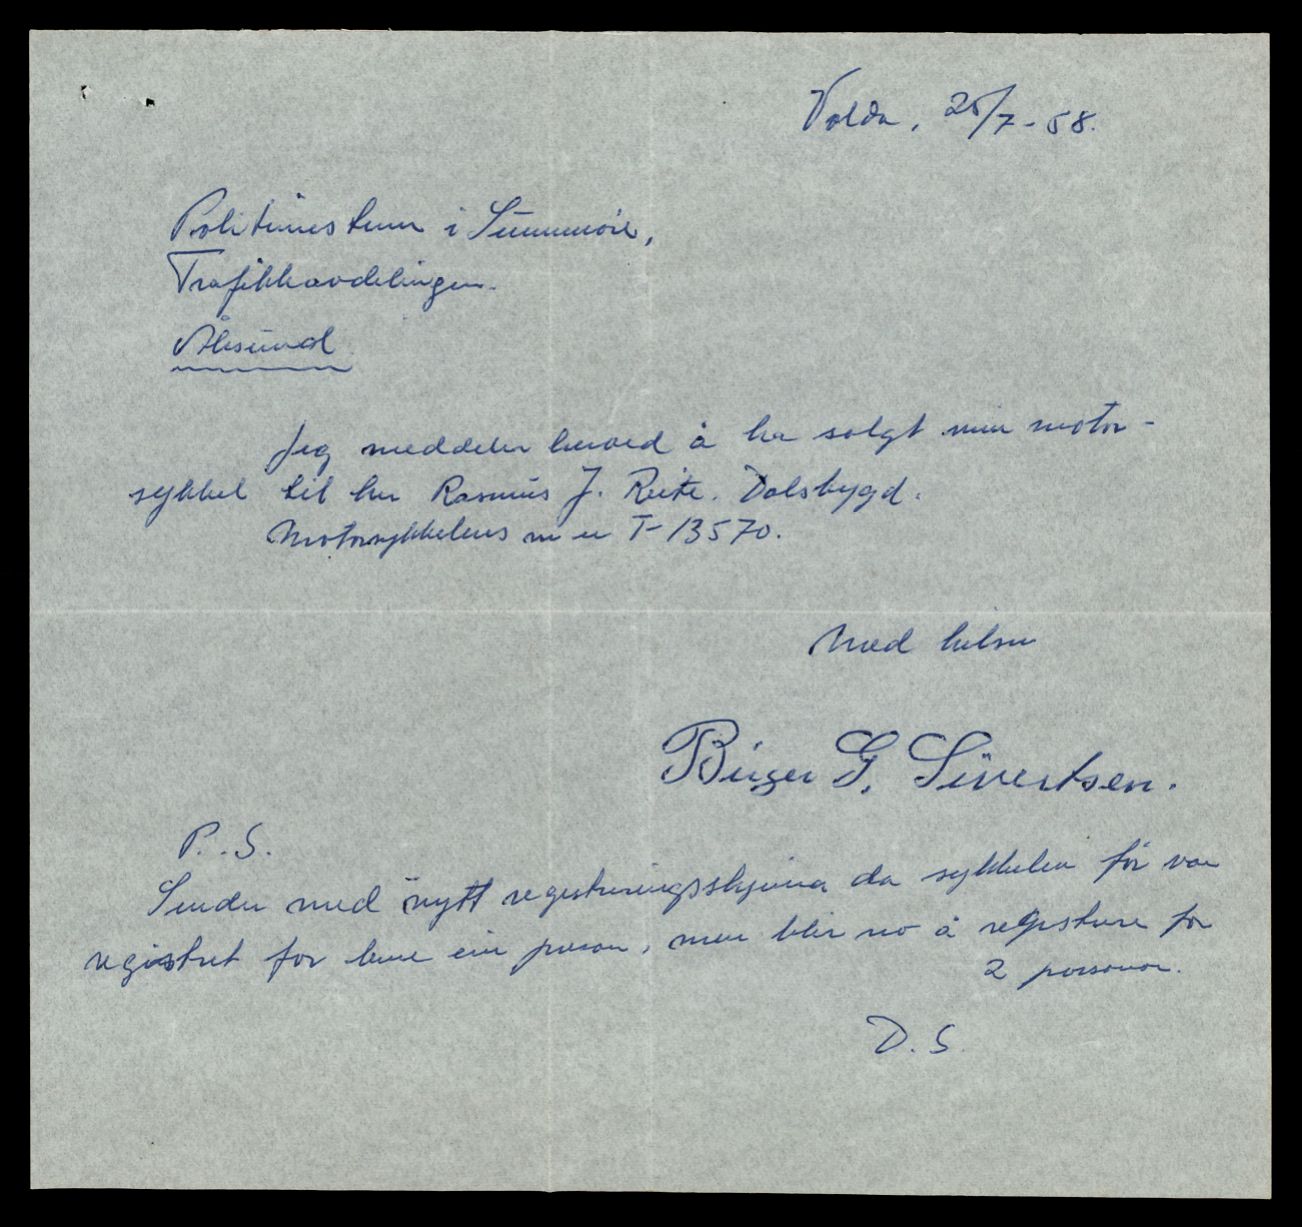 Volda, 25/7-58.
Politimesteren i Sunnmøre,
Trafikkavdelingen.
Ålesund
Jeg meddeler herved å ha solgt min motor-
sykkel til hr Rasmus J. Reite. Dalsbygd.
Motorsykkelens nr er T-13570.
Med hilsen
Birger G. Sivertsen.
P.S.
Sender med nytt registreringsskjema da sykkelen før var
registret for bare ein person, men blir no å registrere for
2 personar.
D.S.